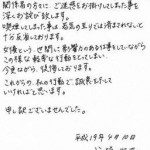 関係者の方々に、ご迷惑をお掛けしてしまった事を
深くお詫び致します。
喫煙してしまった事は若気の至りでは済まされないと
十分反省しております。
女優という、世間に影響力のある仕事をしていながら
この様な軽率な行動をとってしまい
今更ながら、後悔しております。
これからの、私の行動で、誠意を示して
いければと思います。
申し訳ございませんでした。
平成19年4月10日